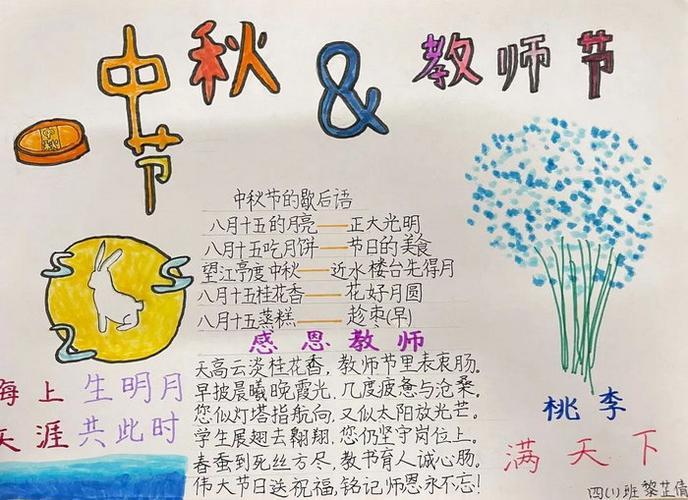 中秋节 & 教师节
中秋
中秋节的歇后语
八月十五的月亮——正大光明
八月十五吃月饼——节日的美食
望江亭度中秋——近水楼台先得月
八月十五桂花香——花好月圆
八月十五蒸糕——趁枣(早)
感恩教师
天高云淡桂花香，教师节里表衷肠。
早披晨曦晚霞光，几度疲惫与沧桑。
您似灯塔指航向，又似太阳放光芒。
学生展翅去翱翔，您仍坚守岗位上。
春蚕到死丝方尽，教书育人诚心肠。
伟大节日送祝福，铭记师恩永不忘！
海上生明月
天涯共此时
桃李
满天下
四(1)班黎芷倩